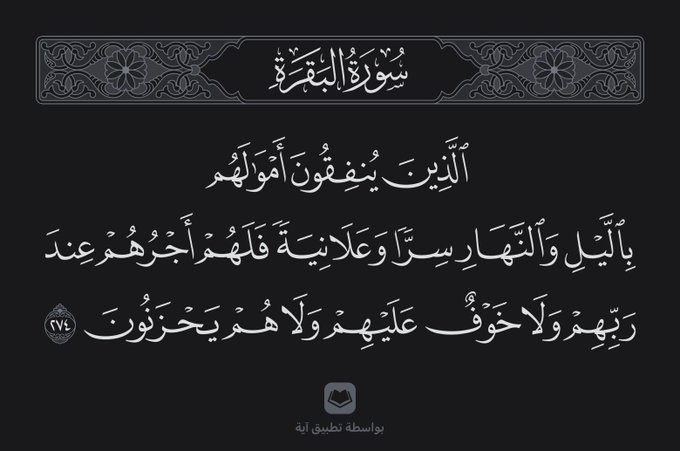 سُورَةُ البَقَرَةِ
ٱلَّذِينَ يُنفِقُونَ أَمۡوَٰلَهُم
بِٱلَّيۡلِ وَٱلنَّهَارِ سِرّٗا وَعَلَانِيَةٗ فَلَهُمۡ أَجۡرُهُمۡ عِندَ
رَبِّهِمۡ وَلَا خَوۡفٌ عَلَيۡهِمۡ وَلَا هُمۡ يَحۡزَنُونَ ٢٧٤
بواسطة تطبيق آية